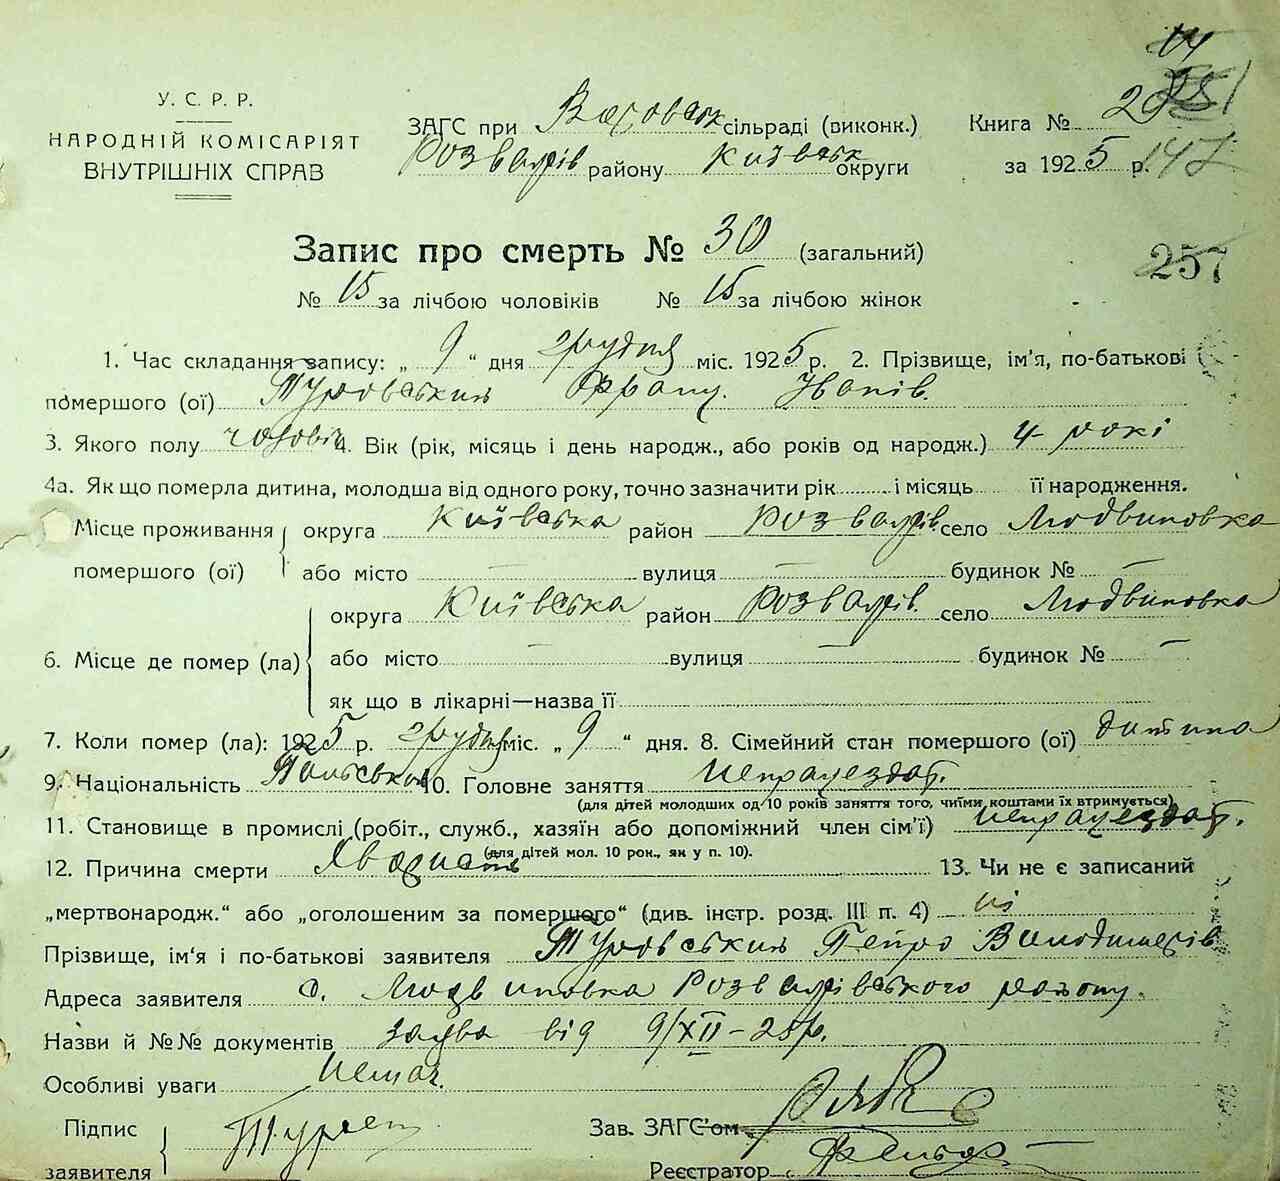 У. С. Р. Р.
НАРОДНІЙ КОМІСАРІЯТ
ВНУТРІШНІХ СПРАВ
ЗАГС при сільраді (виконк.) Книга №
Розважів району Київськ округи за 1925 р. 147
Запис про смерть № 30 (загальний)
257
№ 15 за лічбою чоловіків № 15 за лічбою жінок
1. Час складання запису: „ 9 “ дня грудня міс. 1925 р. 2. Прізвище, ім'я, по-батькові
помершого (ої) Туровський Франц. Іванів.
3. Якого полу чоловіч 4. Вік (рік, місяць і день народж., або років од народж.) 4 рокі
4а. Як що померла дитина, молодша від одного року, точно зазначити рік і місяць її народження.
Місце проживання округа Київська район Розважів село Людвиновка
помершого (ої) або місто — вулиця — будинок № —
округа Київська район Розважів. село Людвиновка
6. Місце де помер (ла) або місто — вулиця — будинок № —
як що в лікарні—назва її
7. Коли помер (ла): 1925 р. грудня міс. „ 9 “ дня. 8. Сімейний стан помершого (ої) дитина
9. Національність Польська 10. Головне заняття непрацездат.
(для дітей молодших од 10 років заняття того, чиїми коштами їх втримується)
11. Становище в промислі (робіт., служб., хазяїн або допоміжний член сім'ї) непрацездат.
(для дітей мол. 10 рок., як у п. 10).
12. Причина смерти 13. Чи не є записаний
„мертвонародж.“ або „оголошеним за помершого“ (див. інстр. розд. III п. 4) ні
Прізвище, ім'я і по-батькові заявителя Туровський Петро Володимерів
Адреса заявителя с. Людвиновка Розважівського району.
Назви й №№ документів заява від 9/XII–25р.
Особливі уваги Немає.
Підпис Зав. ЗАГС'ом
заявителя Реєстратор